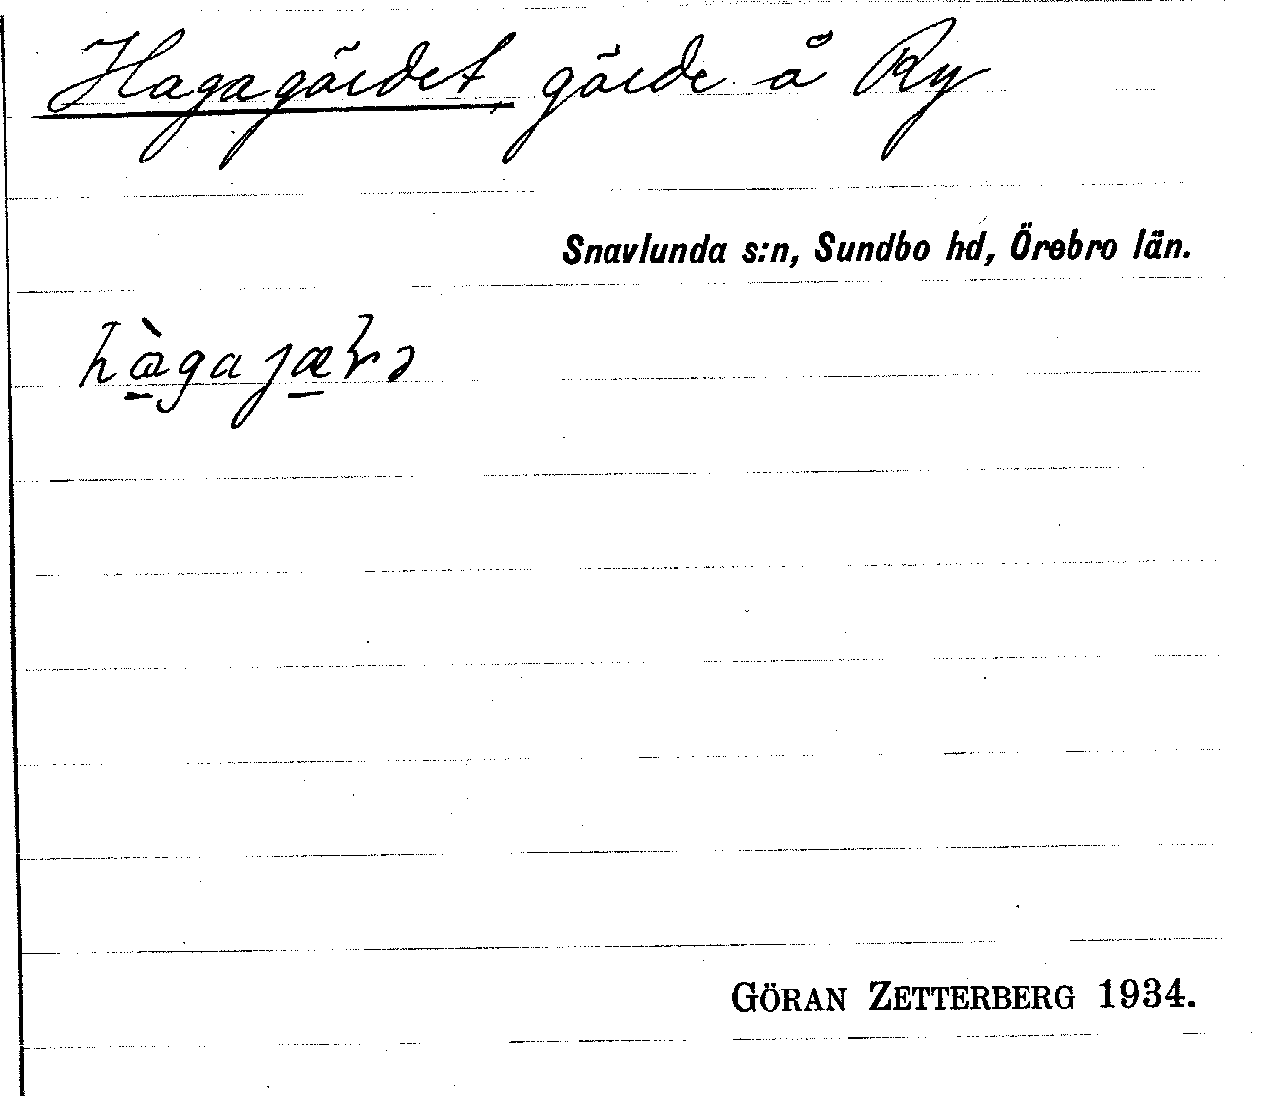 Hagagärdet, gärde å Ry
Snavlunda s:n, Sundbo hd, Örebro län.
GÖRAN ZETTERBERG 1934.